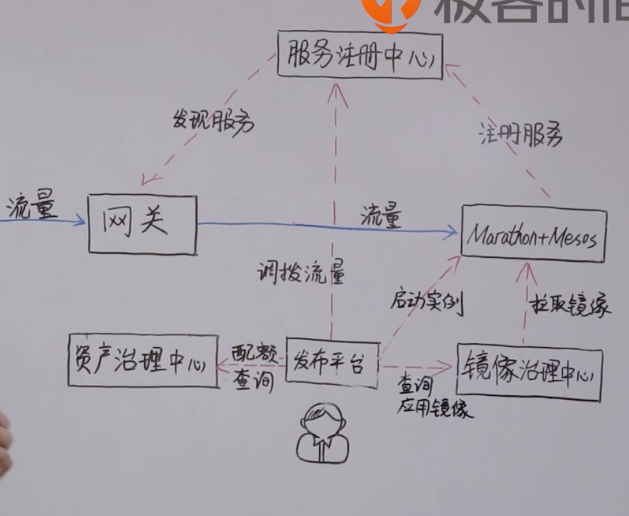 极客时间
服务注册中心
发现服务
注册服务
流量
网关
流量
Marathon+Mesos
调拨流量
启动实例
拉取镜像
资产治理中心
配额
查询
发布平台
查询
应用镜像
镜像治理中心